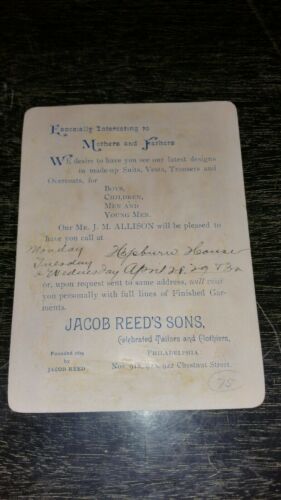 Especially Interesting to
Mothers and Fathers
We desire to have you see our latest designs
in made-up Suits, Vests, Trousers and
Overcoats, for
Boys,
Children,
Men and
Young Men.
Our Mr. J. M. ALLISON will be pleased to
have you call at
Monday Hepburn House
Tuesday
& Wednesday April 28. 29 &
or, upon request sent to same address, will call
you personally with full lines of Finished Gar-
ments.
JACOB REED'S SONS,
Celebrated Tailors and Clothiers,
Founded 1824
by
JACOB REED
PHILADELPHIA
Nos. 918, 920, 922 Chestnut Street.
75